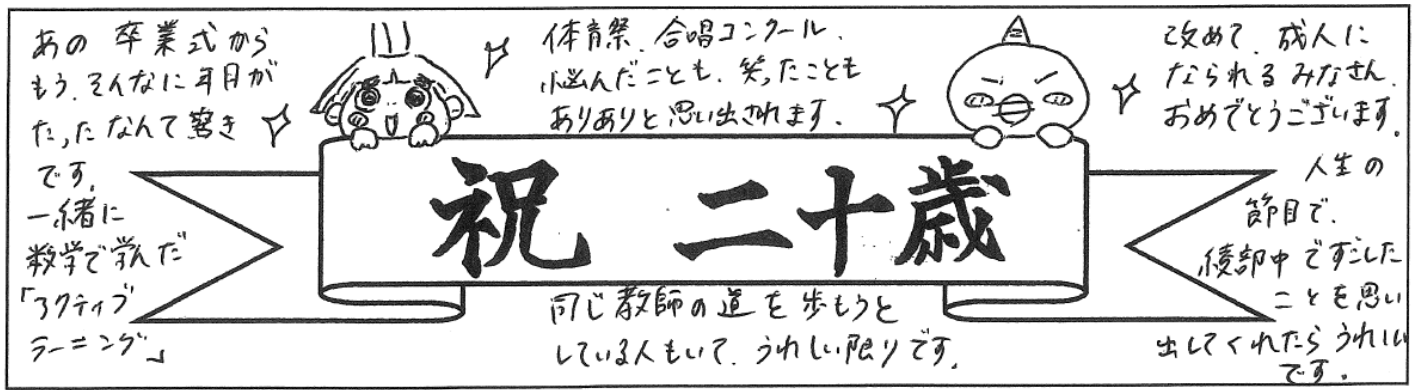 あの 卒業式から
もう、そんなに年月が
たったなんて驚き
です。
一緒に
数学で学んだ
「アクティブ
ラーニング」
体育祭、合唱コンクール、
悩んだことも、笑ったことも
ありありと思い出されます。
祝 二十歳
同じ教師の道を歩もうと
している人もいて、うれしい限りです。
改めて、成人に
なられるみなさん、
おめでとうございます。
人生の
節目で、
綾部中ですごした
ことを思い
出してくれたらうれしい
です。